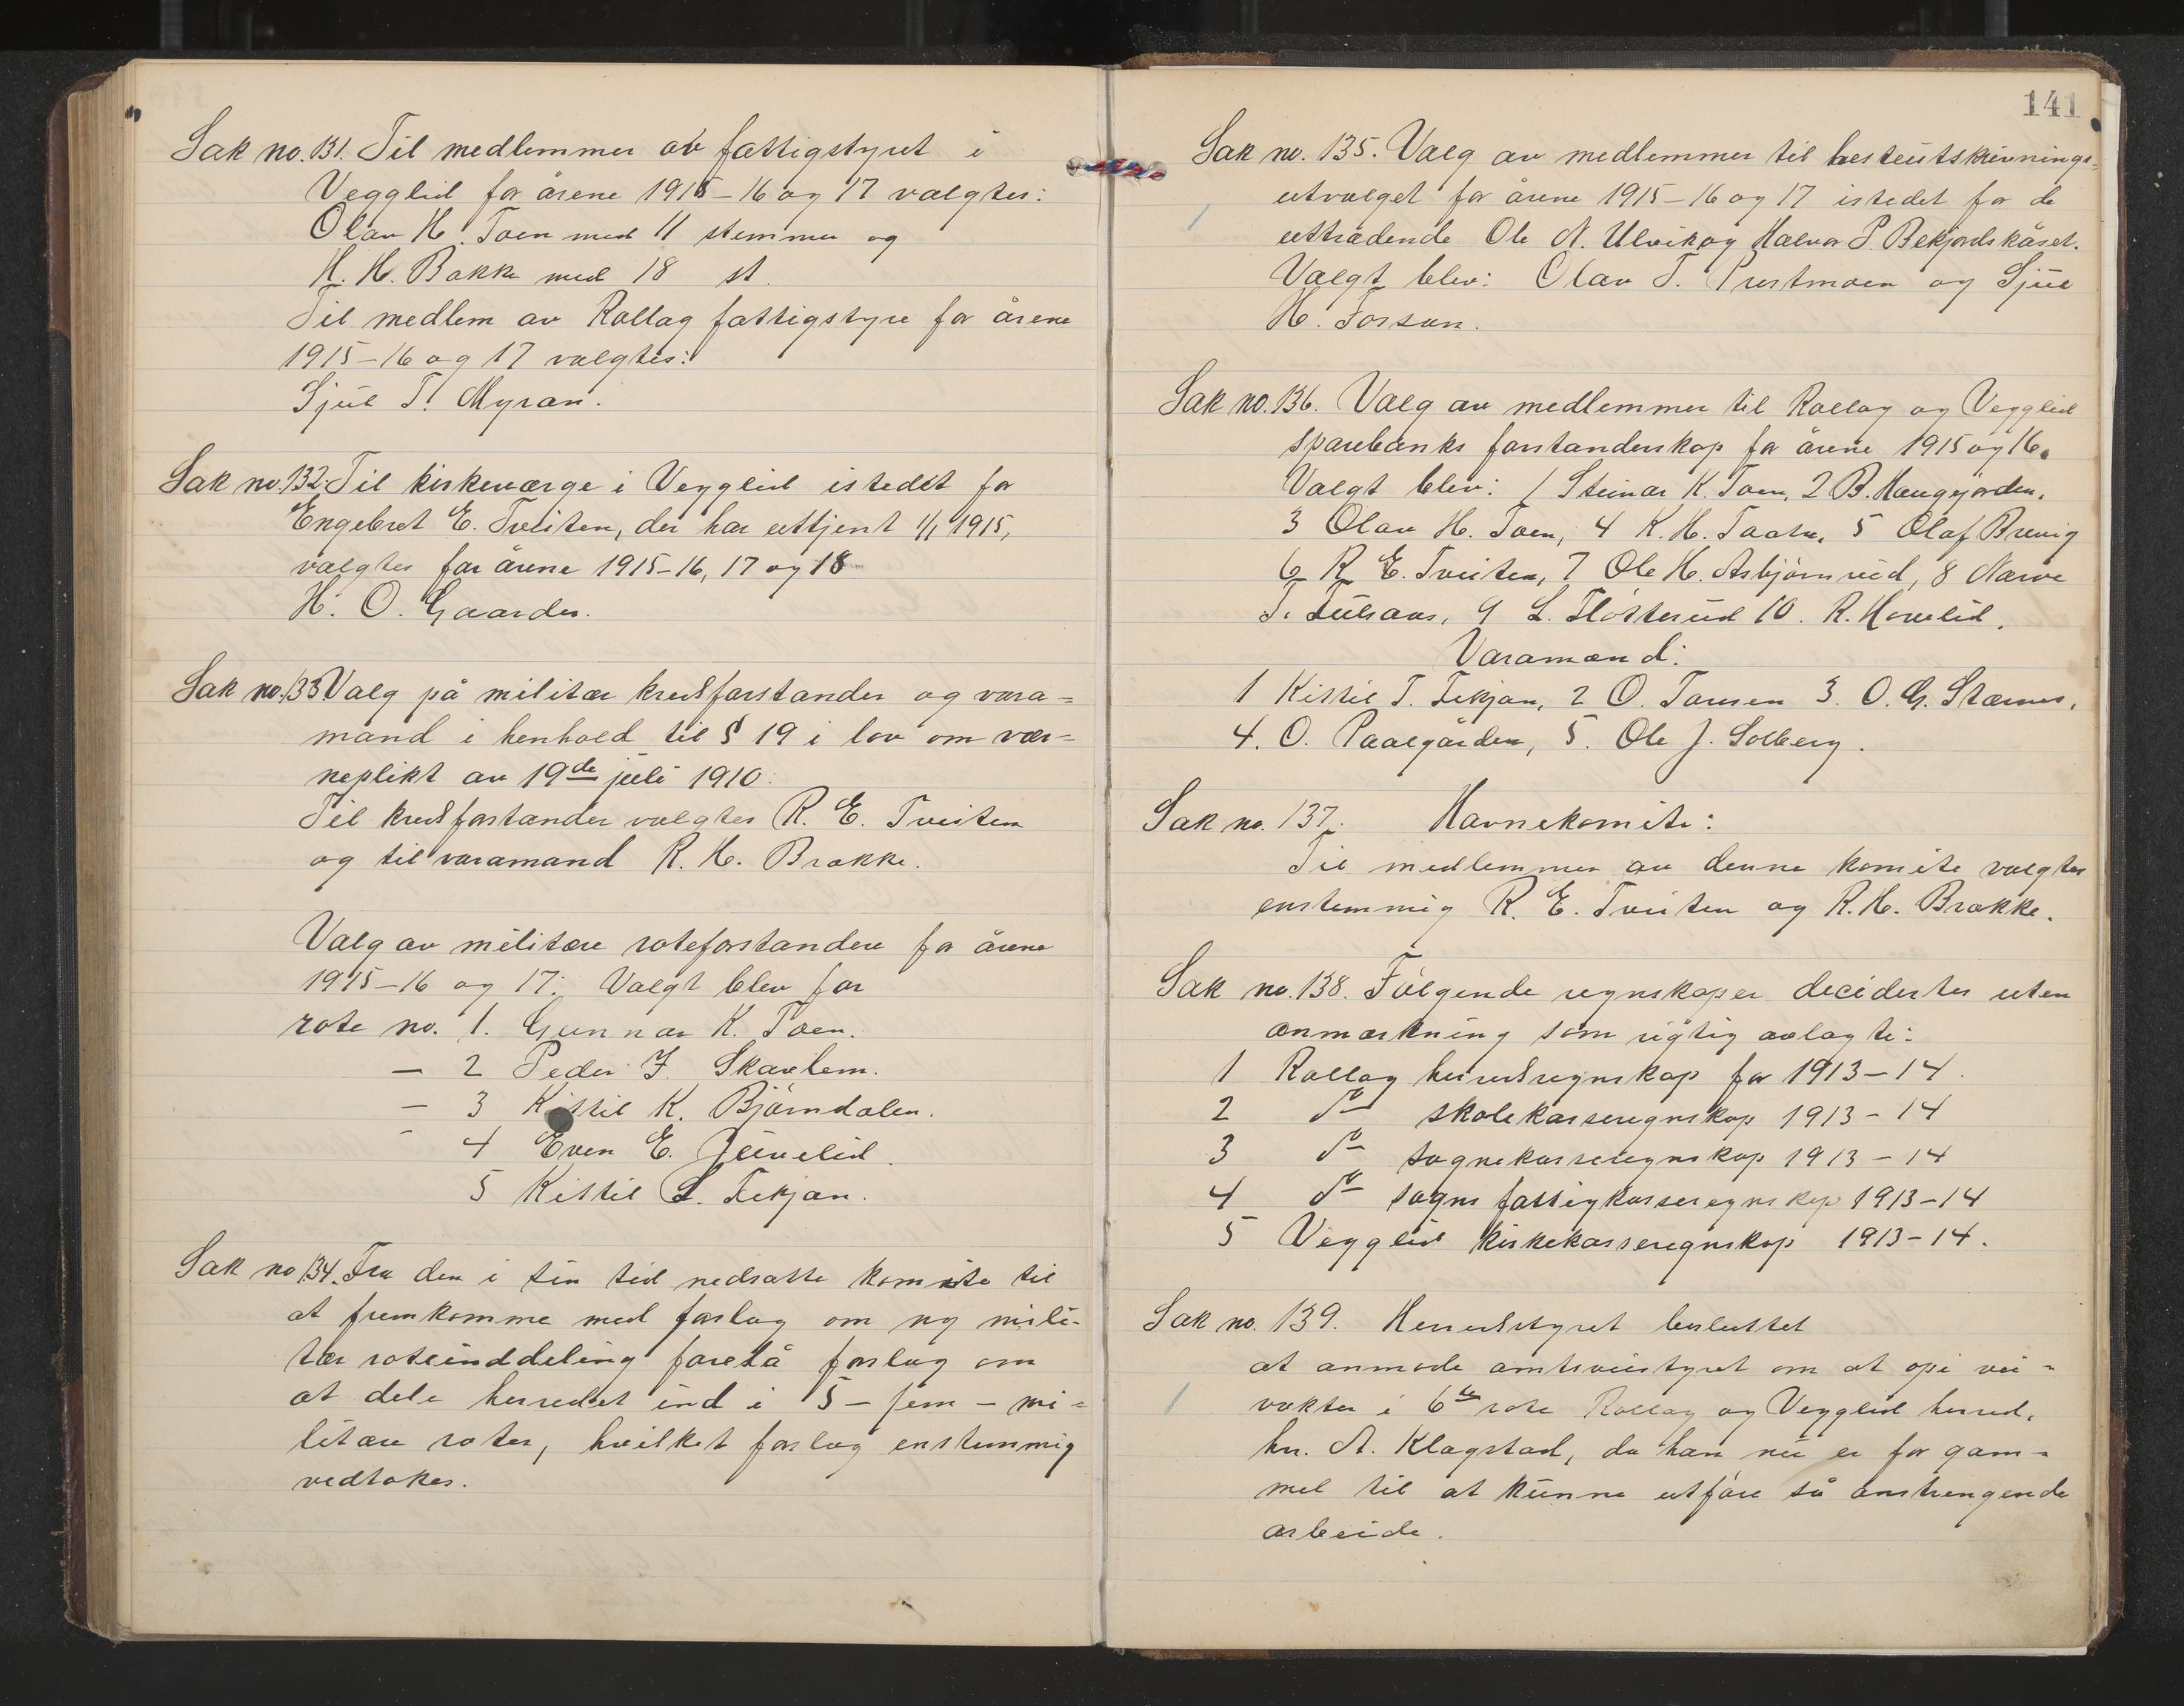 Sak no. 131. Til medlemmer av fattigstyret i
Vegglid for årene 1915-16 og 17 valgtes:
Olav H. Toen med 11 stemmer og
H. H. Bakke med 18 st.
Til medlem av Rollag fattigstyre for årene
1915-16 og 17 valgtes:
Sjul T. Myran.
Sak no. 132. Til kirkeværge i Vegglid istedet for
Engebret E. Tveiten, der har uttjent 1/1 1915,
valgtes for årene 1915-16, 17 og 18
H. O. Gaarder.
Sak no. 133 Valg på militær kredsforstander og vara=
mand i henhold til § 19 i lov om vær=
neplikt av 19de juli 1910:
Til kredsforstander valgtes R. E. Tveiten
og til varamand R. H. Brække.
Valg av militære roteforstandere for årene
1915-16 og 17: Valgt blev for
rote no. 1. Gunnar K. Toen.
— 2 Peder J. Skavlem.
— 3 Kittil K. Björndalen.
- 4 Even E. Juvelid.
5 Kittil S. Tekjan.
Sak no 134. Fra den i sin tid nedsatte komite til
at fremkomme med forslag om ny mili-
tær roteinddeling forelå forslag om
at dele herredet ind i 5 - fem - mi=
litære roter, hvilket forslag enstemmig
vedtokes.
141
Sak no. 135. Valg av medlemmer til hesteutskrivnings=
utvalget for årene 1915-16 og 17 istedet for de
uttrædende Ole N. Ulvik og Halvor P. Bekjordskåset.
Valgt blev: Olav T. Prestmoen og Sjul
H. Forsun.
Sak no. 136. Valg av medlemmer til Rollag og Vegglid
sparebanks forstanderskap for årene 1915 og 16.
Valgt blev: 1 Steinar K. Toen, 2 B. Haugejorden,
3 Olav H. Toen, 4 K. H. 5 Olaf Brevig
6 R. E. Tveiten, 7 Ole H. Asbjörnrud, 8 Narve
T. 9 L. Flötterud 10. R. Hovelid.
Varamænd:
1 Kittil T. Tekjan, 2 O. Tansen 3. O. G. Stærnes,
4. O. Paalgården, 5. Ole J. Solberg.
Sak no. 137. Havnekomite:
Til medlemmer av denne komite valgtes
enstemmig R. E. Tveiten og R. H. Brække.
Sak no. 138. Følgende regnskaper decidertes uten
anmærkning som rigtig avlagte:
1 Rollag herredsregnskap for 1913-14.
2 do skolekasseregnskap 1913-14
3 do sognekasseregnskap 1913-14
4 do sogns fattigkasseregnskap 1913-14
5 Vegglid kirkekasseregnskap 1913-14.
Sak no. 139. Herredstyret besluttet
at anmode amtsveistyret om at opsi vei=
vokter i 6te rote Rollag og Vegglid herred,
hr. A. Klagstad, da han nu er for gam=
mel til at kunne utføre så anstrengende
arbeide.